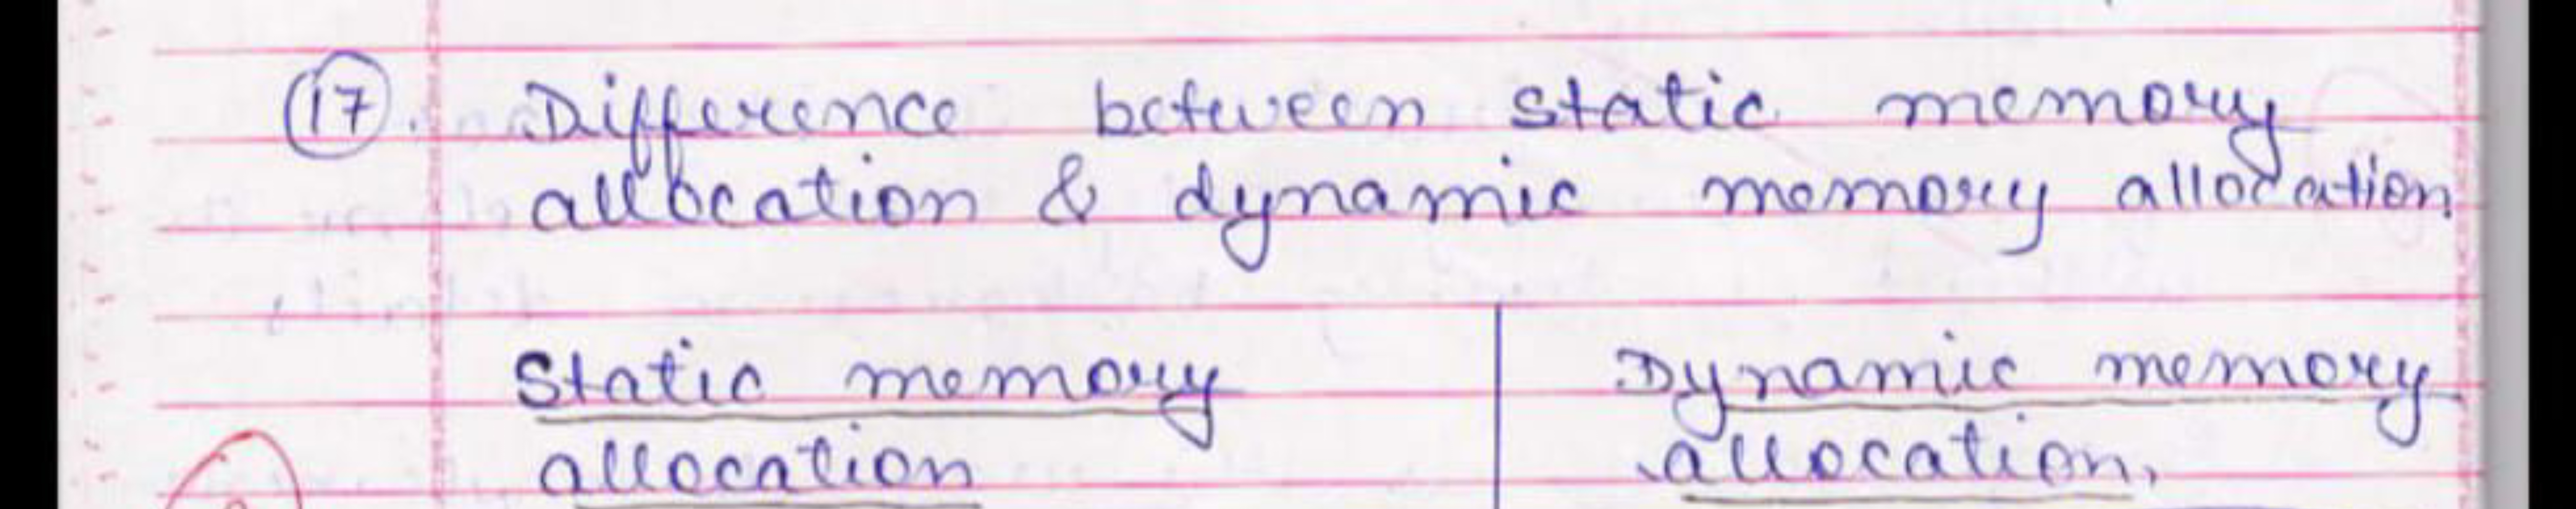 17. Difference between static memory
allocation & dynamic memory allocation
Static memory
allocation
Dynamic memory
allocation.